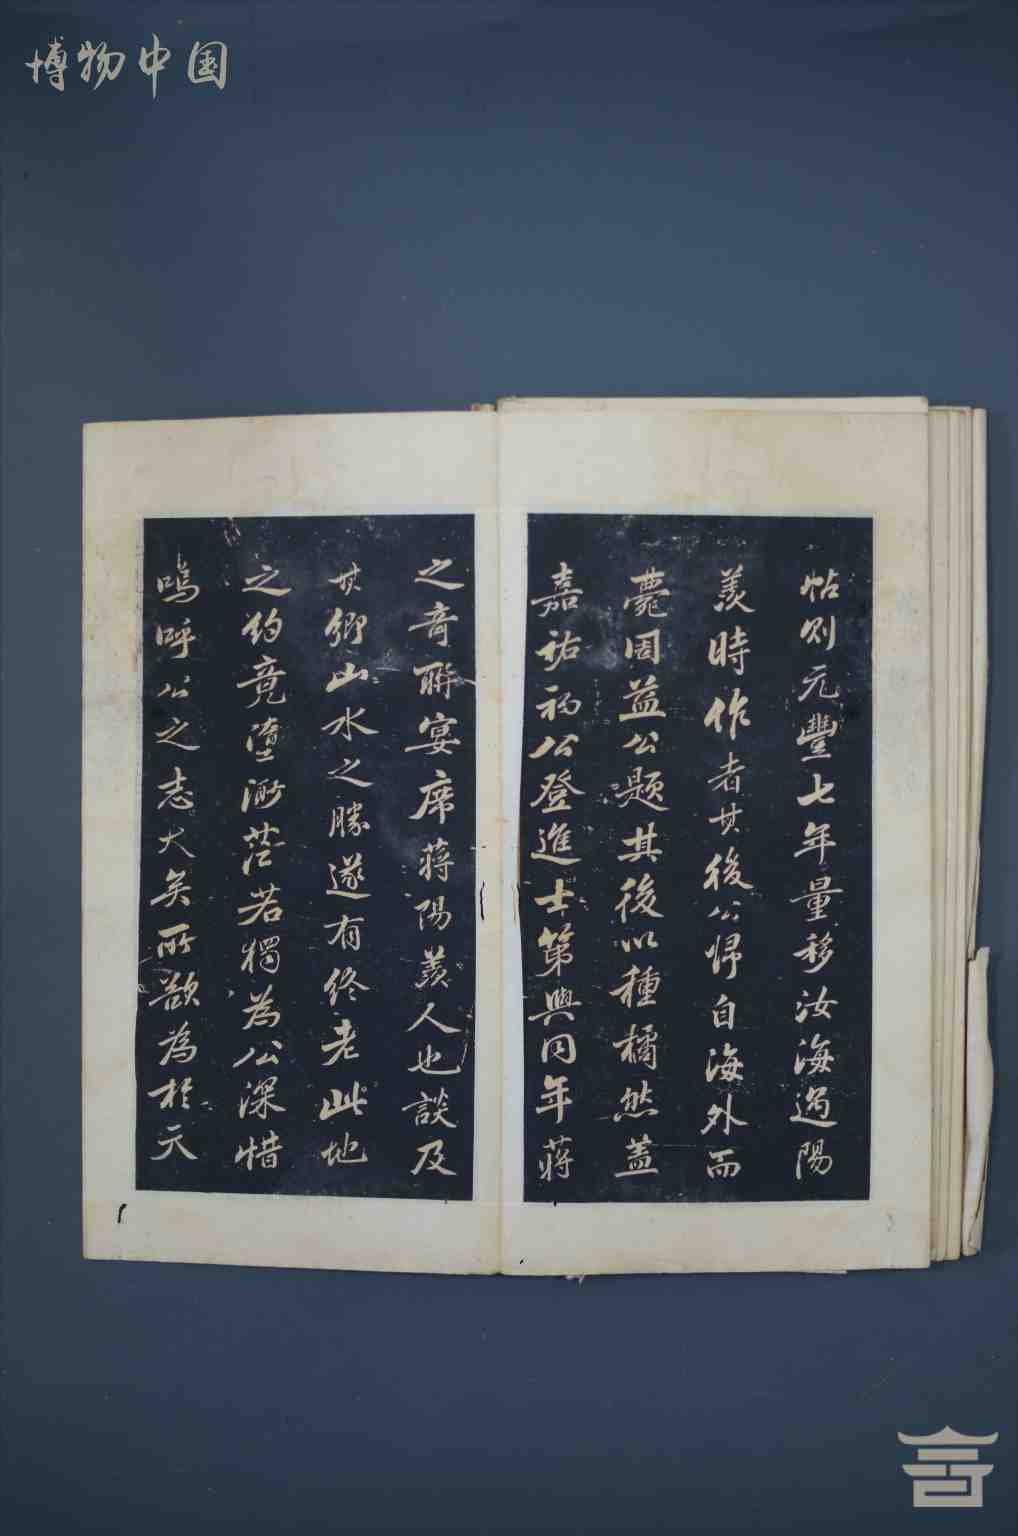 博物中国
帖则元豐七年量移汝海過陽
羨時作者其後公歸自海外而
薨周益公題其後以種橘然蓋
嘉祐初公登進士第與同年蔣
之奇聯宴席蔣陽羨人也談及
其鄉山水之勝遂有終老此地
之約竟墮渺茫若獨為公深惜
嗚呼公之志大矣所欲為於元